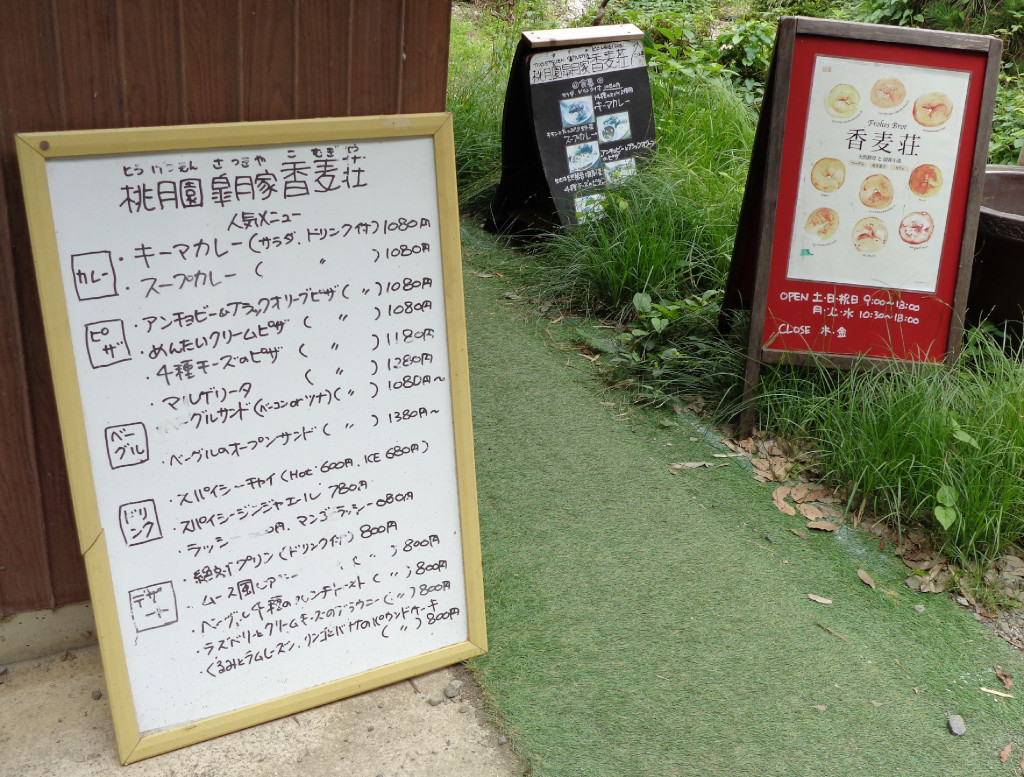 とうげつえん さつきや こむぎや
桃月園 皐月家 香麦荘
人気メニュー
カレー
・キーマカレー (サラダ、ドリンク付) 1080円
・スープカレー ( 〃 ) 1080円
ピザ
・アンチョビーandブラックオリーブピザ ( 〃 ) 1080円
・めんたいクリームピザ ( 〃 ) 1080円
・4種チーズのピザ ( 〃 ) 1180円
・マルゲリータ ( 〃 ) 1280円
ベーグル
ーグルサンド (ベーコン or ツナ) ( 〃 ) 1080円〜
・ベーグルのオープンサンド ( 〃 ) 1380円〜
ドリンク
・スパイシーチャイ (Hot 600円、ICE 680円)
・スパイシージンジャエール 780円
・ラッシー 円、マンゴーラッシー 680円
デザート
・絶対プリン (ドリンク付) 800円
・ムース風レア ( 〃 ) 800円
・ベーグル4種のフレンチトースト ( 〃 ) 800円
・ラズベリーとクリームチーズのブラウニー ( 〃 ) 800円
・くるみとラムレーズン、リンゴとバナナのパウンドケーキ
( 〃 ) 800円
桃月園皐月家香麦荘
キーマカレー
スープカレー
アンチョビーandブラックオリーブ
のピザ
4種チーズのピザ
Frohes Brot
香麦荘
OPEN 土・日・祝日 9:00〜18:00
月・火・水 10:30〜18:00
CLOSE 木・金